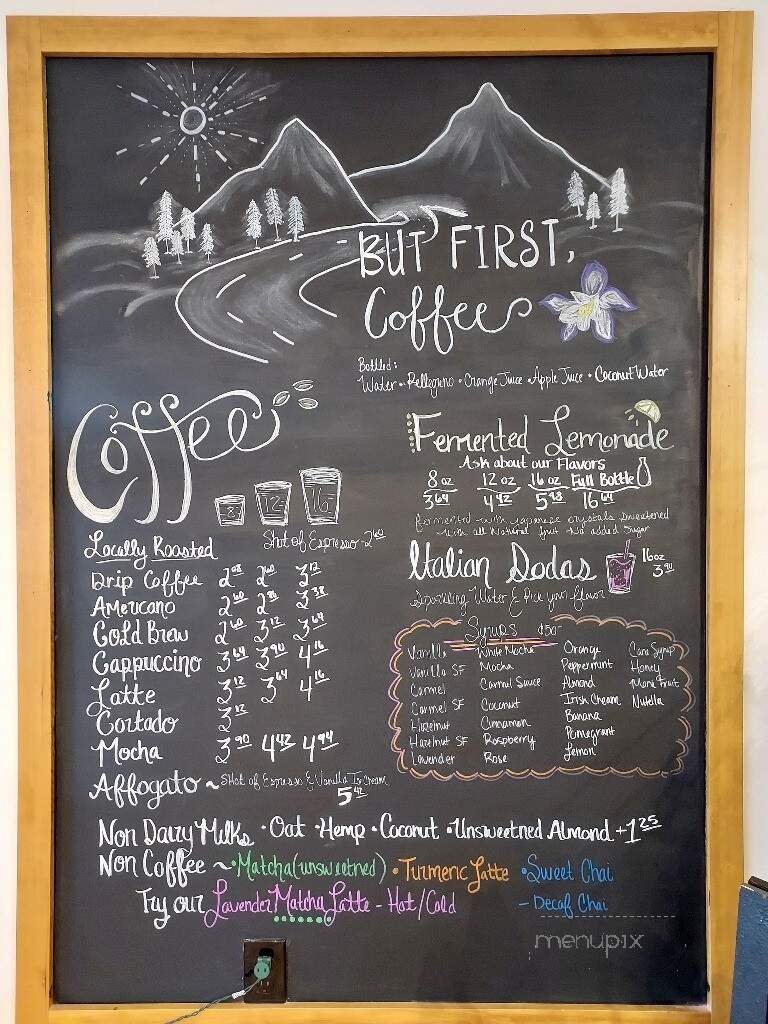 BUT FIRST,
Coffee
Bottled:
Water • Pellegrino • Orange Juice • Apple Juice • Coconut Water
Coffee
8 12 16
Locally Roasted
Shot of Espresso - 2.60
Drip Coffee 2.08 2.60 3.12
Americano 2.60 2.86 3.38
Cold Brew 2.60 3.12 3.64
Cappuccino 3.64 3.90 4.16
Latte 3.12 3.64 4.16
Cortado 3.12
Mocha 3.90 4.42 4.94
Affogato ~ Shot of Espresso & Vanilla Ice Cream
5.42
Fermented Lemonade
Ask about our Flavors
8 oz 12 oz 16 oz Full Bottle
3.64 4.42 5.98 16.64
Fermented with Japanese crystals sweetened
with all Natural fruit No added Sugar
Italian Sodas 16oz
3.90
Sparkling Water & Pick your flavor
Syrups ¢50-
Vanilla White Mocha Orange Cane Syrup
Vanilla SF Mocha Peppermint Honey
Carmel Carmel Sauce Almond Monk Fruit
Carmel SF Coconut Irish Cream Nutella
Hazelnut Cinnamon Banana
Hazelnut SF Raspberry Pomegrant
Lavender Rose Lemon
Non Dairy Milks • Oat • Hemp • Coconut • Unsweetned Almond +1.25
Non Coffee ~ • Matcha (unsweetned) • Turmeric Latte • Sweet Chai
Try our Lavender Matcha Latte - Hot/Cold - Decaf Chai
menupix